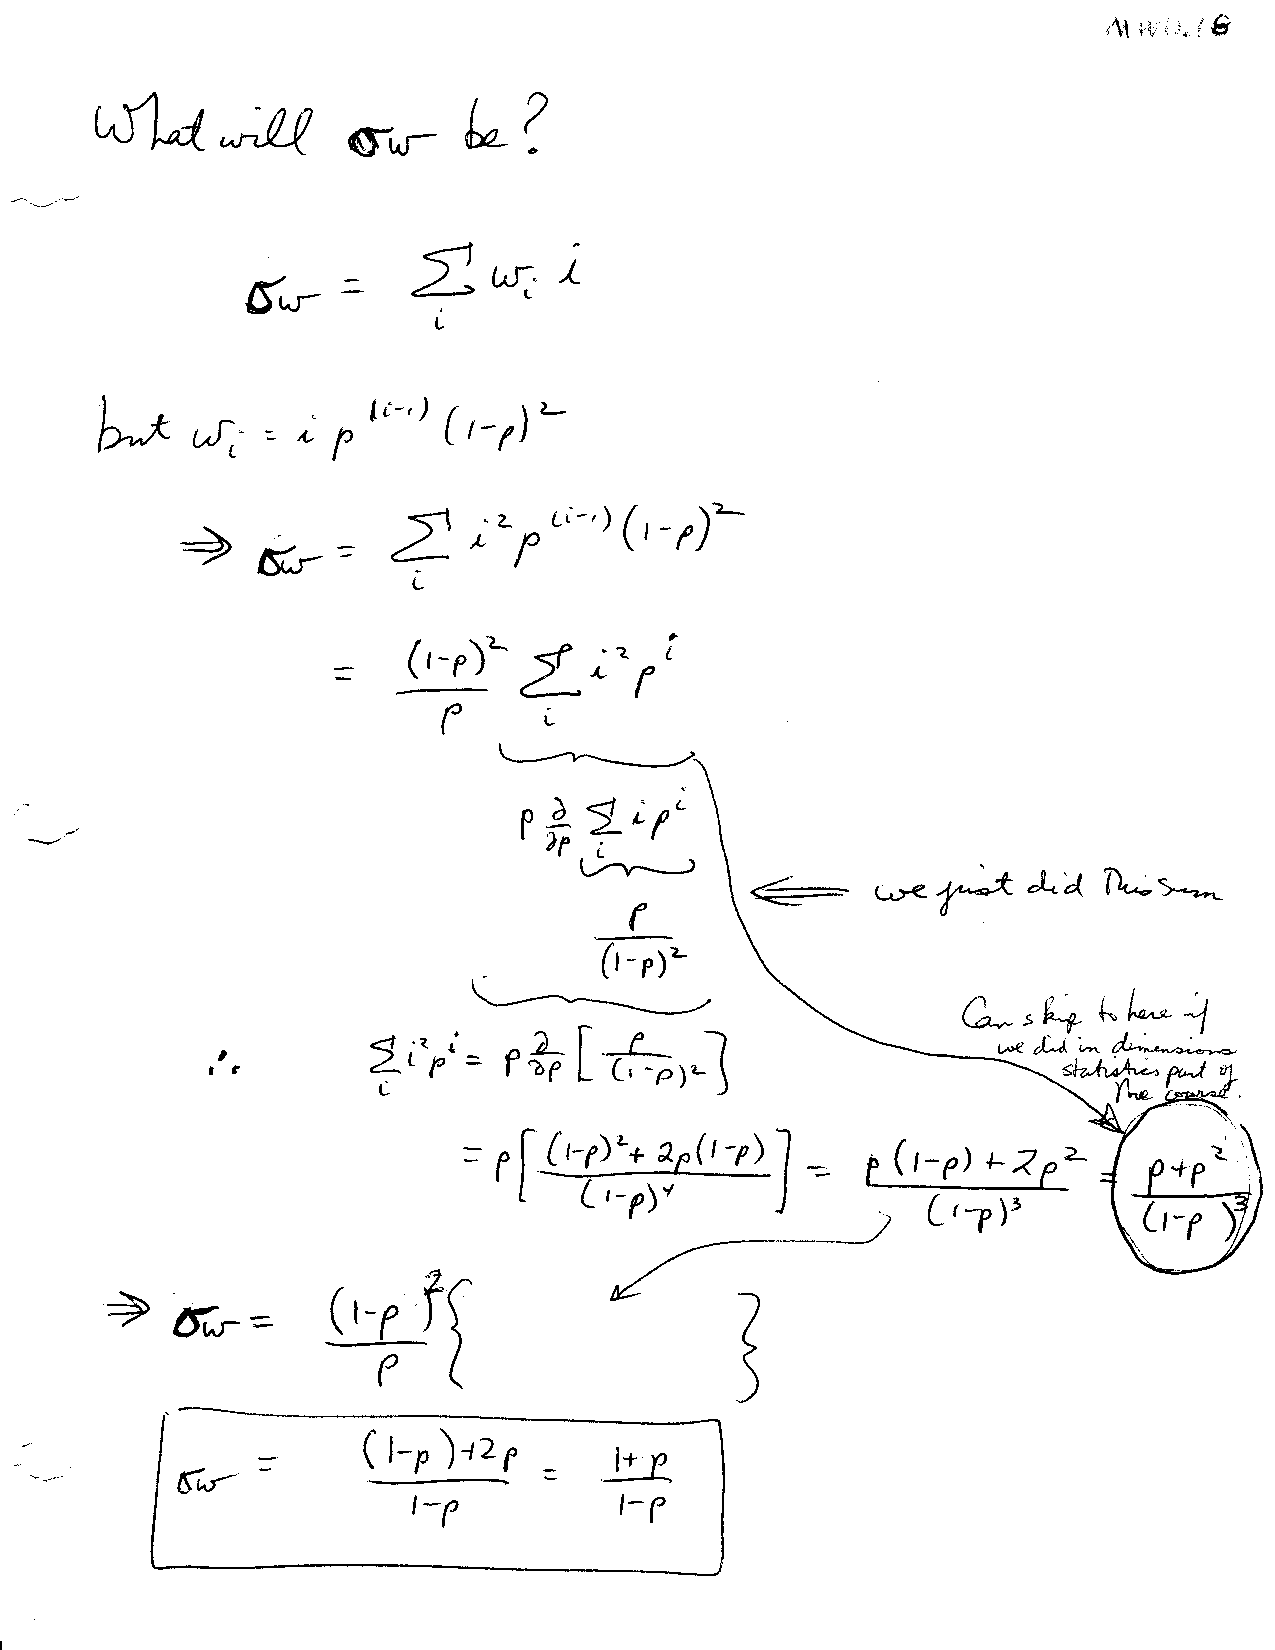 MWD.16
What will σw be?
σw = Σ_i w_i i
but w_i = i p^(i-1) (1-p)^2
⇒ σw = Σ_i i^2 p^(i-1) (1-p)^2
= (1-p)^2 / p Σ_i i^2 p^i
p ∂/∂p Σ_i i p^i
⇐ we just did this sum
p / (1-p)^2
Can skip to here if
we did in dimensions
statistics part of
the course.
∴ Σ_i i^2 p^i = p ∂/∂p [ p / (1-p)^2 ]
= p [ (1-p)^2 + 2p(1-p) / (1-p)^4 ] = p(1-p) + 2p^2 / (1-p)^3 = p+p^2 / (1-p)^3
⇒ σw = (1-p)^2 / p { }
σw = (1-p)+2p / 1-p = 1+p / 1-p